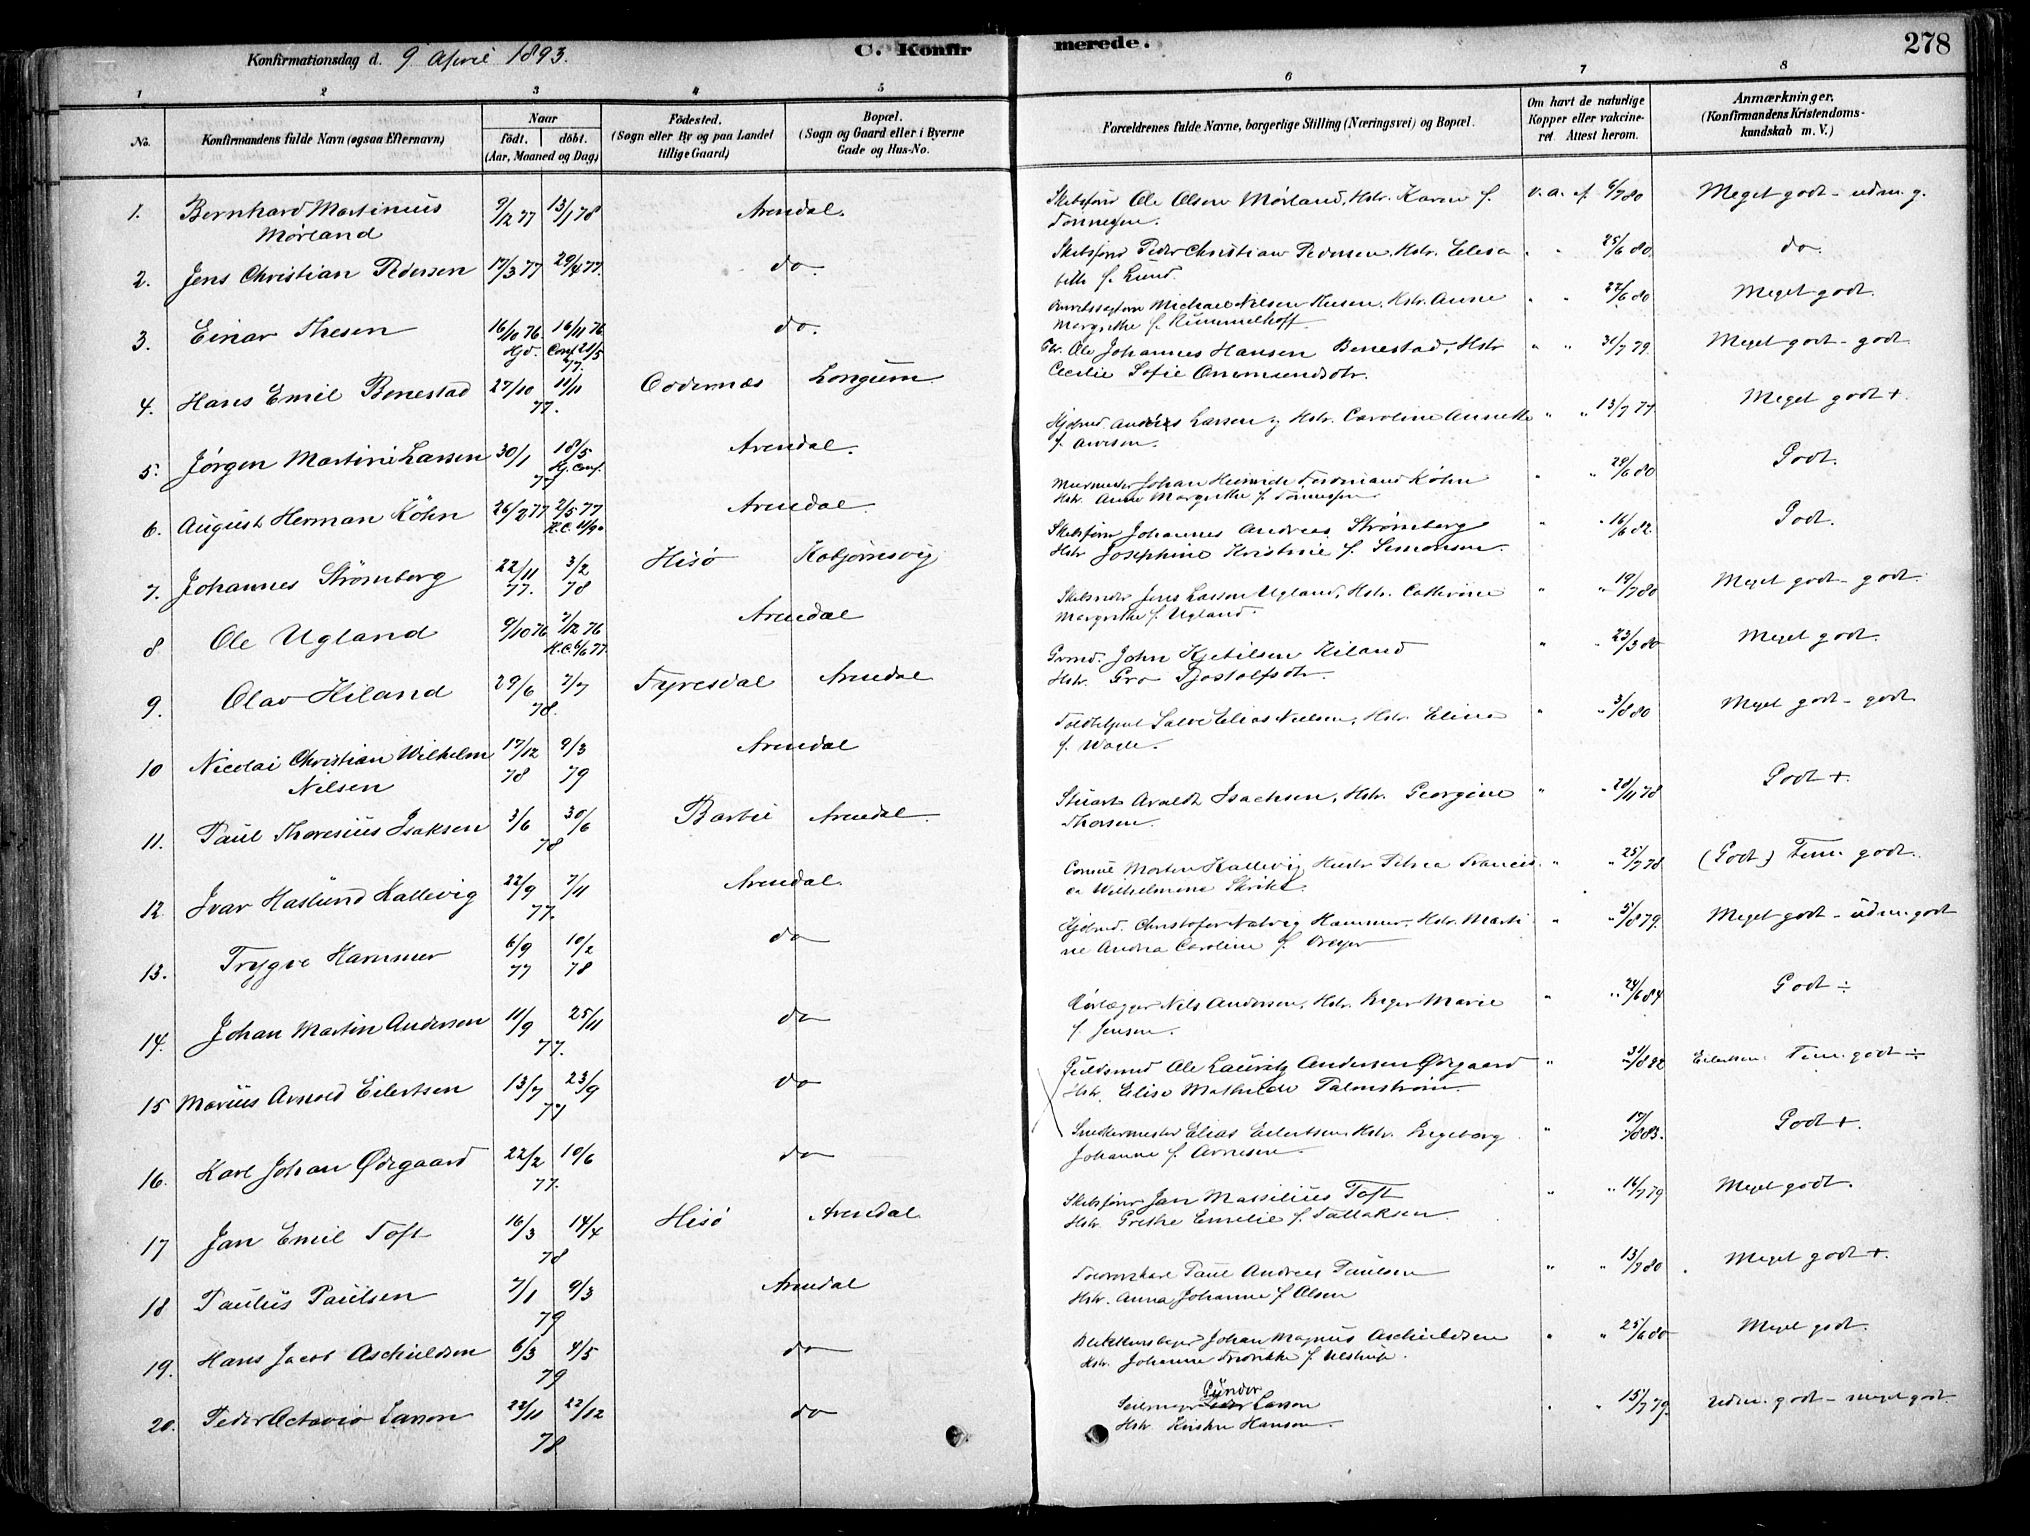 Konfirmationsdag d. 9 April 1893. C. Konfir merede. 278
1 2 3 4 5 6 7 8
No. Konfirmandens fulde Navn (ogsaa Efternavn) Naar født. døbt. (Aar, Maaned og Dag) Fødested. (Sogn eller By og paa Landet tillige Gaard) Bopæl. (Sogn og Gaard eller i Byerne Gade og Hus-No. Forældrenes fulde Navne, borgerlige Stilling (Næringsvei) og Bopæl. Om havt de naturlige Kopper eller vakcineret. Attest herom. Anmærkninger. (Konfirmandens Kristendomskundskab m. V.)
1. Bernhard Martinius 9/2 77 13/1 78 Arendal. Skibsfører Ole Olsen Mørland, Hstr. Karen f. v. a. af 6/7 80 Meget godt - udm. g.
Mørland Tønnesen.
2. Jens Christian Pedersen 17/3 77 29/4 77. do. Skibsfører Peder Christian Pedersen, Hstr. Elisa " " 25/6 80. do.
beth f. Lund.
3. Einar Thesen 16/10 76. 16/11 76 do. Michael Nilsen Thesen, Hstr. Anne " " 22/6 80 Meget godt.
Hjd. Conf. 21/5 77. Margrethe f. Rummelhoff.
4. Hans Emil Benestad 27/10 11/11 77. Oddernæs Longum. Ole Johannes Hansen Benestad, Hstr " " 31/7 79. Meget godt - godt
Cecilie Sofie Ommundsdtr.
5. Jørgen Martin Larsen 30/1 18/5 77 Hj. Conf. Arendal. Anders Larsen, Hstr. Caroline Annette " " 13/7 77. Meget godt +
f. Arnesen.
6. August Herman Köhn 26/2 77 2/5 77 Arendal. Murmester Johan Heinrich Ferdinand Köhn " " 29/6 80 Godt.
Hstr. Anne Margrethe f. Tønnesen
7. Johannes Strømberg 22/11 77. 3/2 78 Hisø Kolbjørnsvig Skibsfører Johannes Andreas Strømberg " " 16/6 82. Godt.
Hstr Josephine Kristine f. Simonsen.
8 Ole Ugland 9/10 76 7/12 76 H.C. 6/6 77. Arendal Jens Larsen Ugland, Hstr. Cathrine " " 19/7 80 Meget godt - godt.
Margrethe f. Ugland.
9. Olav Kiland 29/6 7/7 78. Fyresdal Arendal Grmd. John Kjetilsen Kiland " " 23/3 80 Meget godt.
Hstr. Gro Tjostolfsdtr.
10 Nicolai Christian Wilhelm 17/12 78 9/3 79 Arendal Toldbetjent Salve Elias Nielsen, Hstr. Eline " " 3/8 80 Meget godt - godt
Nilsen f. Wogle.
11. Paul Thoresius Isaksen 3/6 30/6 78 Barbu Arendal. Stuart Isachsen, Hstr. Georgine " " 28/11 78 Godt +.
Thorsen.
12. Ivar Haslund Kallevig 22/9 7/11 77. Arendal. Consul Morten Kallevig Hustr. Petrea Francis- " " 25/7 78. (Godt) Tem. godt.
ca Wilhelmine
13. Trygve Hammer 6/9 77 10/2 78 do Christofer Natvig Hammer, Hstr. Marti " " 5/8 79. Meget godt - udm. godt
ne Andrea Caroline f. Dreyer
14. Johan Martin Andersen 11/9 25/11 77. do Rørlægger Nils Andersen, Hstr. Inger Marie " " 24/6 84 Godt ÷
f. Jensen.
15 Marius Arnold Eilertsen 13/7 23/9 77 do Guldsmed Ole Lauritz Andersen Ødegaard " " 31/8 82 Eilertsen Tem. godt ÷
Hstr. Elise Mathilde Palmstrøm.
16. Karl Johan Ødegaard 22/2 10/6 77. do Snedkermester Elias Eilertsen, Hstr. Ingeborg " 17/8 83. Godt +.
Johanne f. Arnesen.
17 Jan Emil Toft 16/3 14/4 78 Hisø Arendal Skibsfører Jan Marsilius Toft " " 16/7 79 Meget godt.
Hstr. Grethe Emelie f. Tallaksen.
18 Paulus Paulsen 7/1 9/3 79 Arendal Paul Andreas Paulsen " " 13/7 80 Meget godt +.
Hstr. Anna Johanne f Olsen
19. Hans Jacob Aschildsen 6/3 4/5 79 do Johan Magnus Aschildsen " " 25/6 80 Meget godt.
Hstr. Johanne Fredrikke f. Ulstrup.
20. Peder Octavio Larsen 22/11 22/12 78. do Seilmager Gunder Larsen " " 15/7 79. Udm. godt - meget godt.
Hstr. Kirstin Hansen.